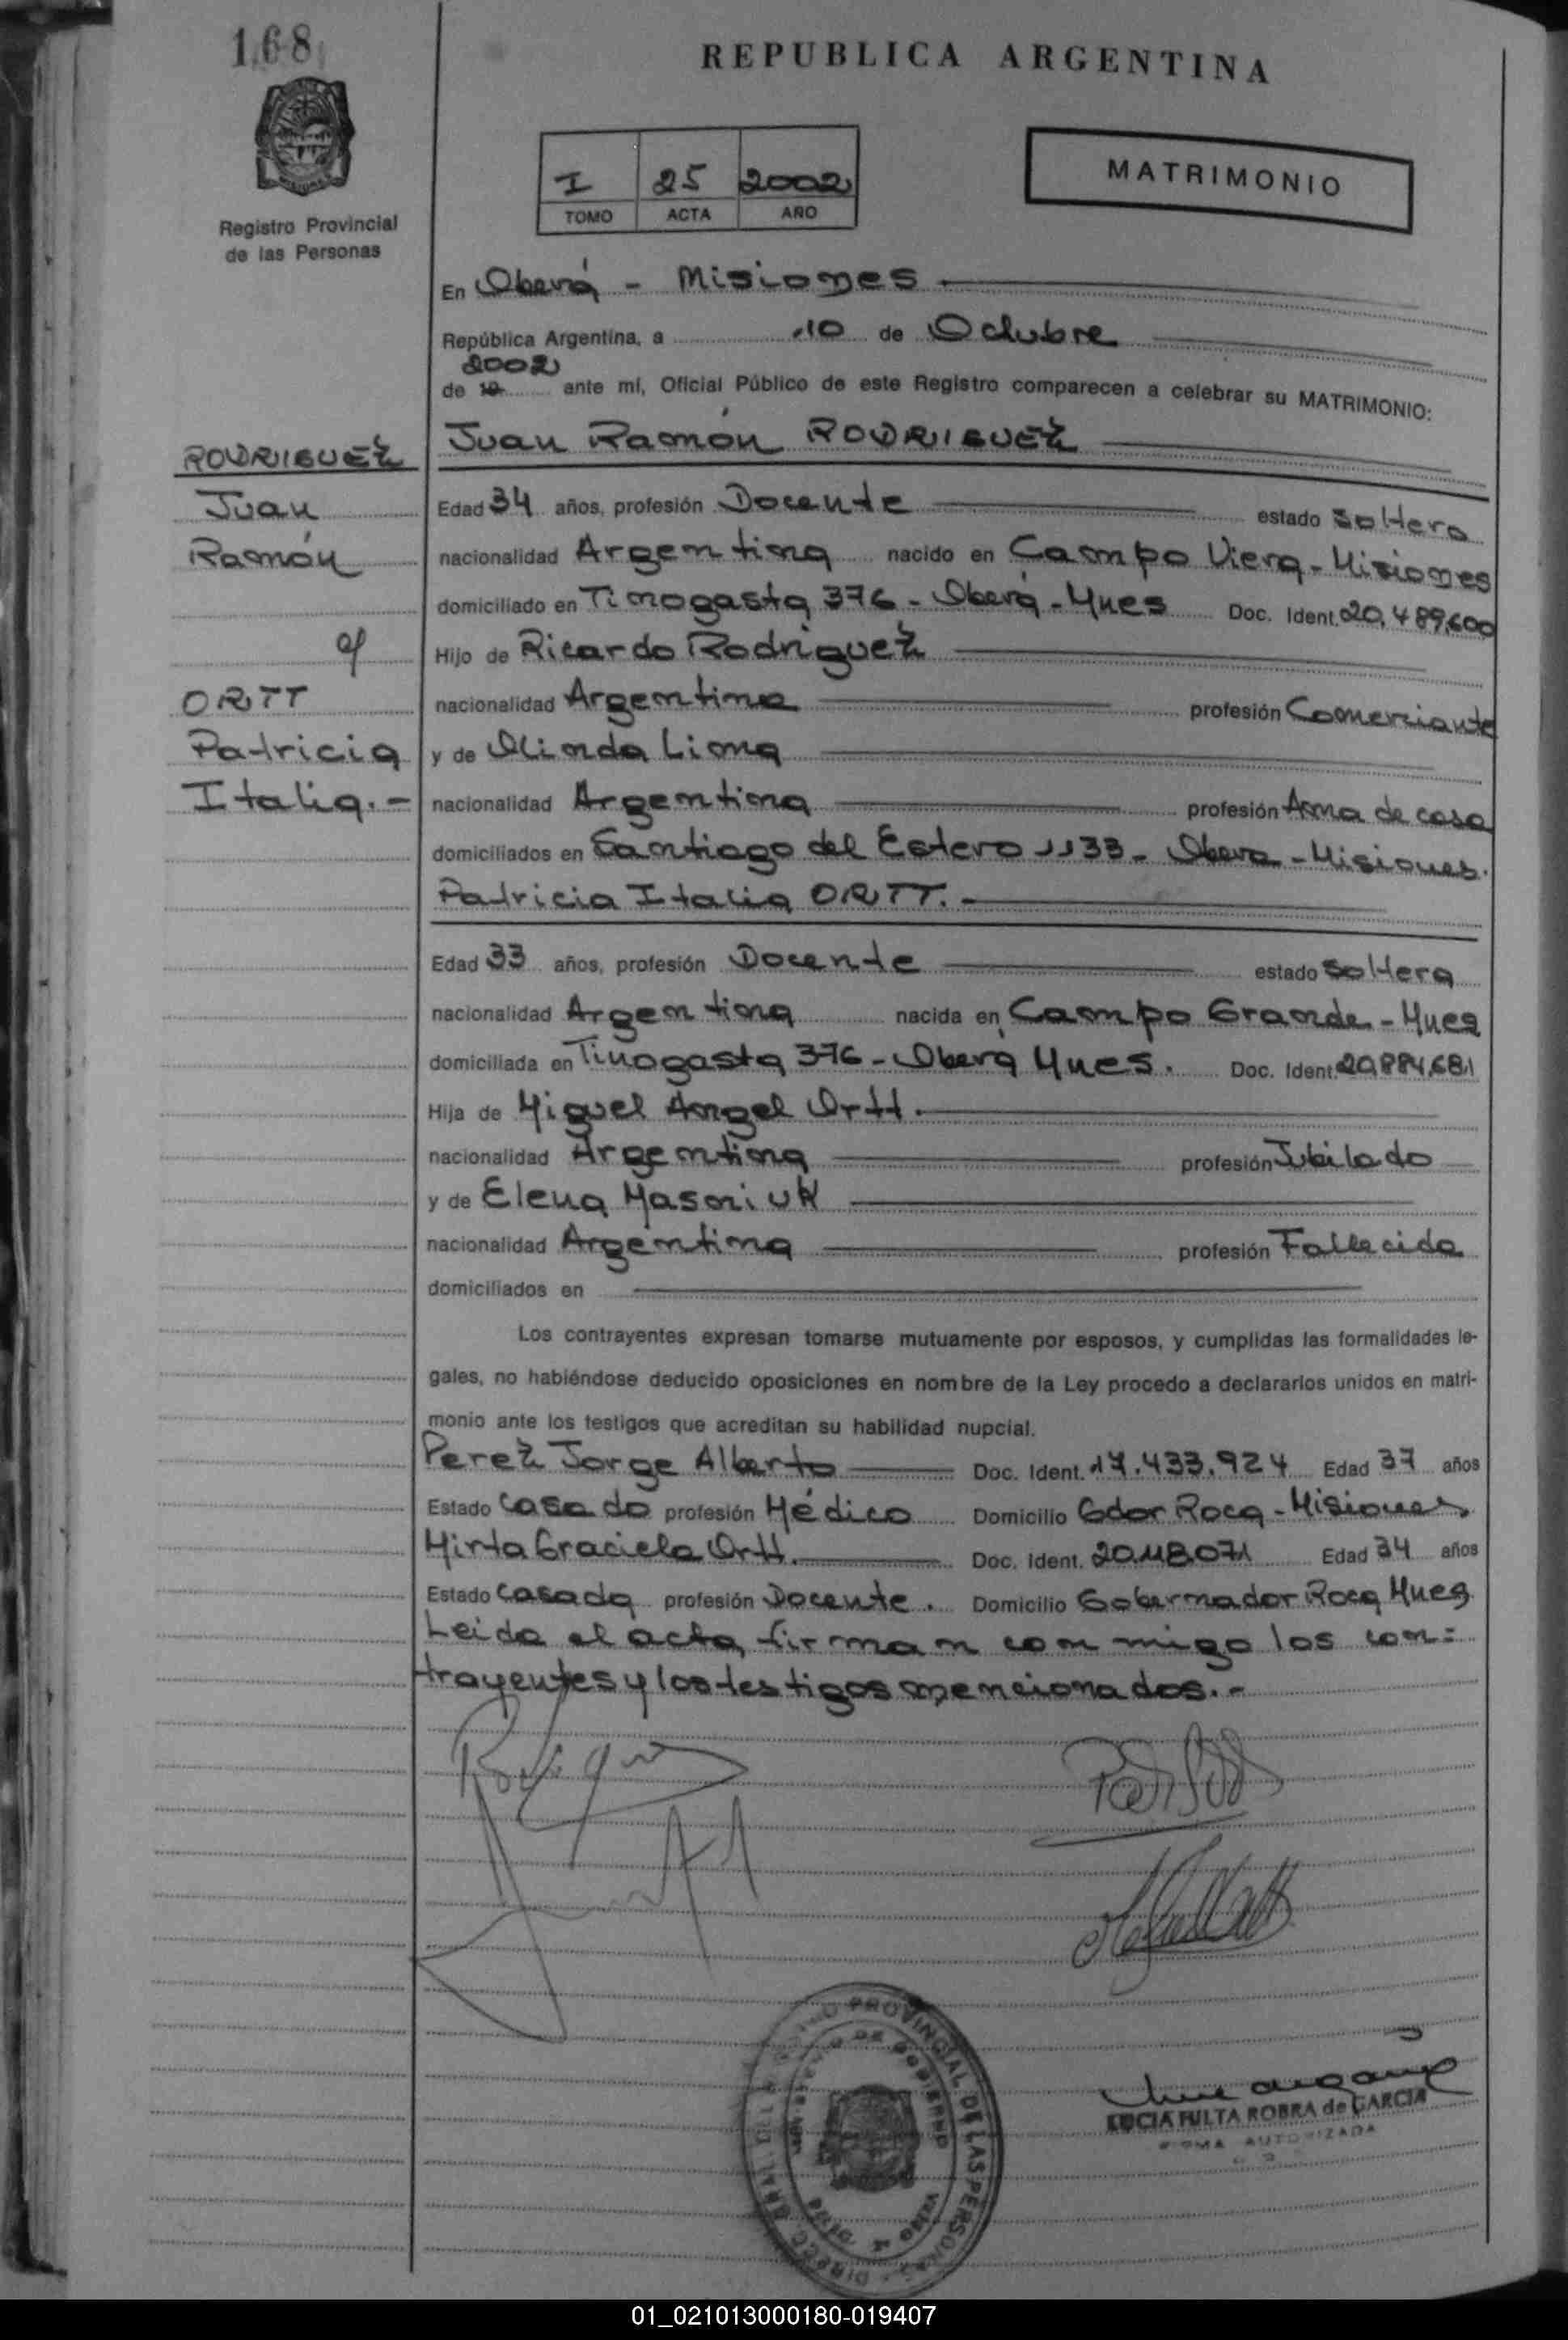 168
REPUBLICA ARGENTINA
I 25 2002
TOMO ACTA AÑO
MATRIMONIO
Registro Provincial
de las Personas
En Oberá - Misiones
República Argentina, a 10 de Octubre
2002
de 19 ante mí, Oficial Público de este Registro comparecen a celebrar su MATRIMONIO:
Juan Ramón RODRIGUEZ
RODRIGUEZ
Juan
Ramón
c/
ORTT
Patricia
Italia.-
Edad 34 años, profesión Docente estado soltero
nacionalidad Argentina nacido en Campo Viera - Misiones
domiciliado en Tinogasta 376 - Oberá - Mnes Doc. Ident. 20.489.600
Hijo de Ricardo Rodriguez
nacionalidad Argentina profesión Comerciante
y de Olinda Lima
nacionalidad Argentina profesión Ama de casa
domiciliados en Santiago del Estero 1133 - Obera - Misiones.
Patricia Italia ORTT.-
Edad 33 años, profesión Docente estado soltera
nacionalidad Argentina nacida en Campo Grande - Mnes
domiciliada en Tinogasta 376 - Oberá Mnes. Doc. Ident. 20.884.681
Hija de Miguel Angel Ortt.
nacionalidad Argentina profesión Jubilado
y de Elena Masniuk
nacionalidad Argentina profesión Fallecida
domiciliados en
Los contrayentes expresan tomarse mutuamente por esposos, y cumplidas las formalidades le-
gales, no habiéndose deducido oposiciones en nombre de la Ley procedo a declararlos unidos en matri-
monio ante los testigos que acreditan su habilidad nupcial.
Perez Jorge Alberto Doc. Ident. 17.433.924 Edad 37 años
Estado Casado profesión Médico Domicilio Gdor Roca - Misiones
Mirta Graciela Ortt. Doc. Ident. 20.118.071 Edad 34 años
Estado Casada profesión Docente. Domicilio Gobernador Roca Mnes
Leida el acta, firman conmigo los con=
trayentes y los testigos mencionados.-
PROVINCIAL DE LAS PERSONAS
DE GOBIERNO
de GARCIA
FIRMA AUTORIZADA
01_021013000180-019407